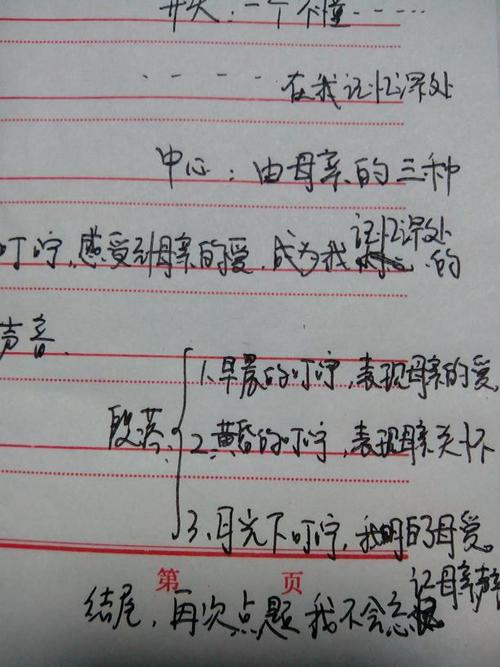 开头：一个不懂……
……在我记忆深处
中心：由母亲的三种
叮咛，感受到母亲的爱，成为我记忆深处的
声音.
段落
1.早晨的叮咛，表现母亲的爱
2.黄昏的叮咛，表现母亲关怀
3.月光下叮咛，我明的母爱
第 页
结尾，再次点题我不会忘记母亲声